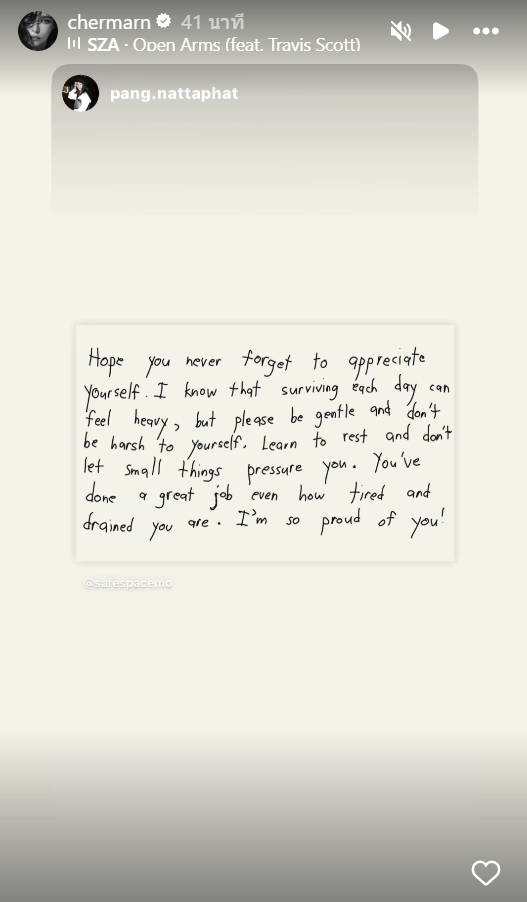 chermarn 41 นาที
SZA · Open Arms (feat. Travis Scott)
pang.nattaphat
Hope you never forget to appreciate
yourself. I know that surviving each day can
feel heavy, but please be gentle and don't
be harsh to yourself. Learn to rest and don't
let small things pressure you. You've
done a great job even how tired and
drained you are. I'm so proud of you!
@safespacemo